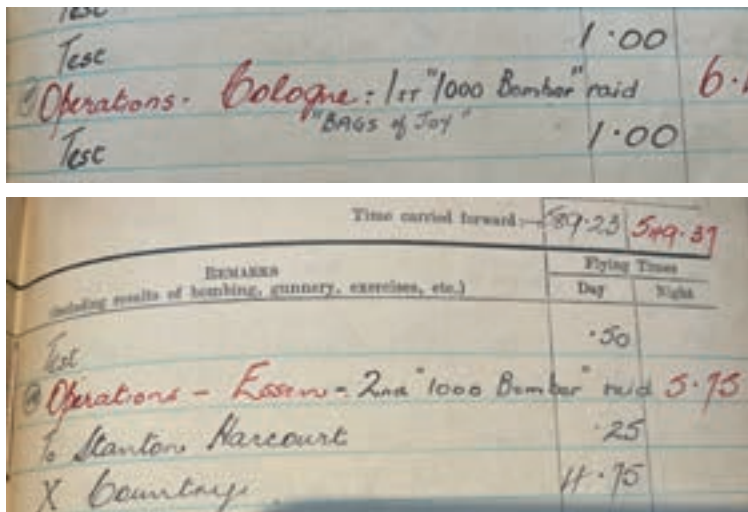 Test
Test 1.00
Operations - Cologne : 1st "1000 Bomber" raid 6.
"BAGS of JOY"
Test 1.00
Time carried forward:— 89.23 549.37
REMARKS Flying Times
(including results of bombing, gunnery, exercises, etc.) Day Night
Test .50
Operations - Essen - 2nd "1000 Bomber" raid 5.75
To Stanton Harcourt .25
X Country. 4.75